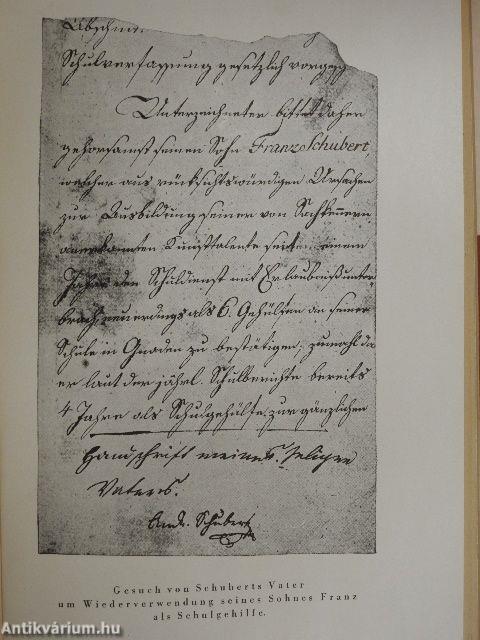 Abschn.
Schulverfassung gesetzlich vorgesch
Unterzeichneter bittet daher
gehorsamst seinen Sohn Franz Schubert,
welcher aus rücksichtswürdigen Ursachen
zur Ausbildung seiner von Sachkennern
anerkannten Kunsttalente seit einem
Jahre den Schuldienst mit Erlaubniß unter-
brach, neuerdings als 6. Gehülfen an seiner
Schule in Gnaden zu bestätigen; zumahl da
er laut der jährl. Schulberichte bereits
4 Jahre als Schulgehülfe, zur gänzlichen
Handschrift meines seligen
Vaters.
Andr. Schubert
Gesuch von Schuberts Vater
um Wiederverwendung seines Sohnes Franz
als Schulgehilfe.
Antikvárium.hu